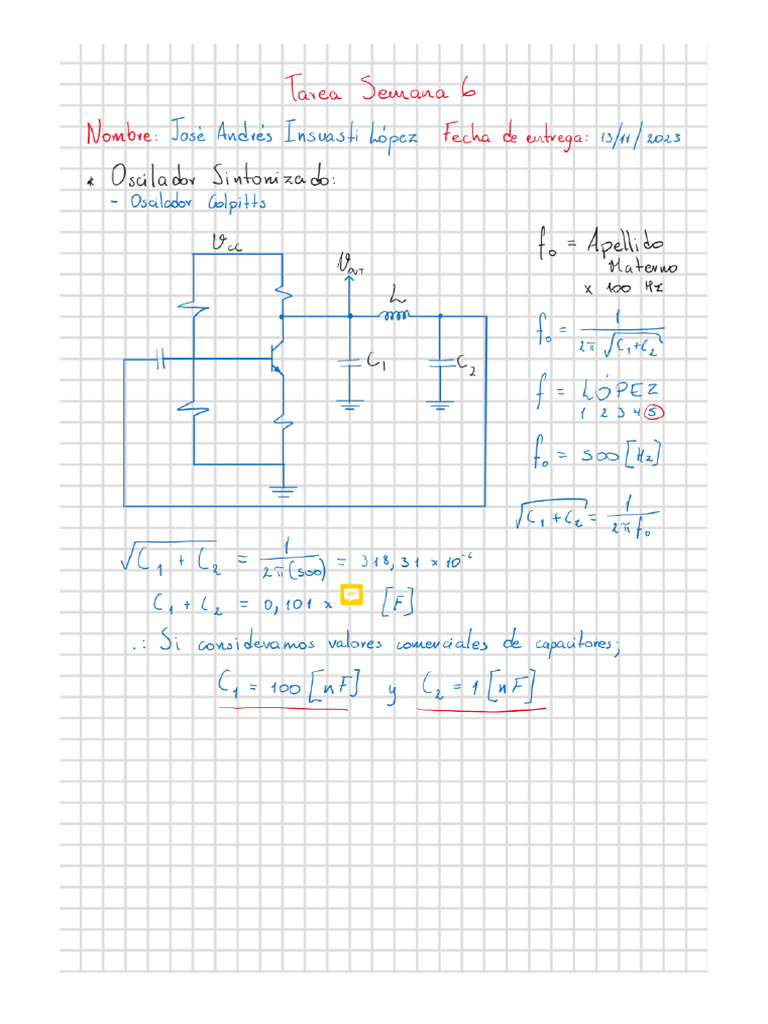 Tarea Semana 6
Nombre: José Andrés Insuasti López Fecha de entrega: 13/11/2023
* Oscilador Sintonizado:
- Oscilador Colpitts
Vcc
VOUT
L
C1
C2
f0 = Apellido
Materno
x 100 Hz
f0 = 1 / 2π √C1+C2
f = LÓPEZ
1 2 3 4 5
f0 = 500 [Hz]
√C1+C2 = 1 / 2π f0
√C1 + C2 = 1 / 2π(500) = 318,31 x 10⁻⁶
C1 + C2 = 0,101 x [F]
.: Si consideramos valores comerciales de capacitores;
C1 = 100 [nF] y C2 = 1 [nF]